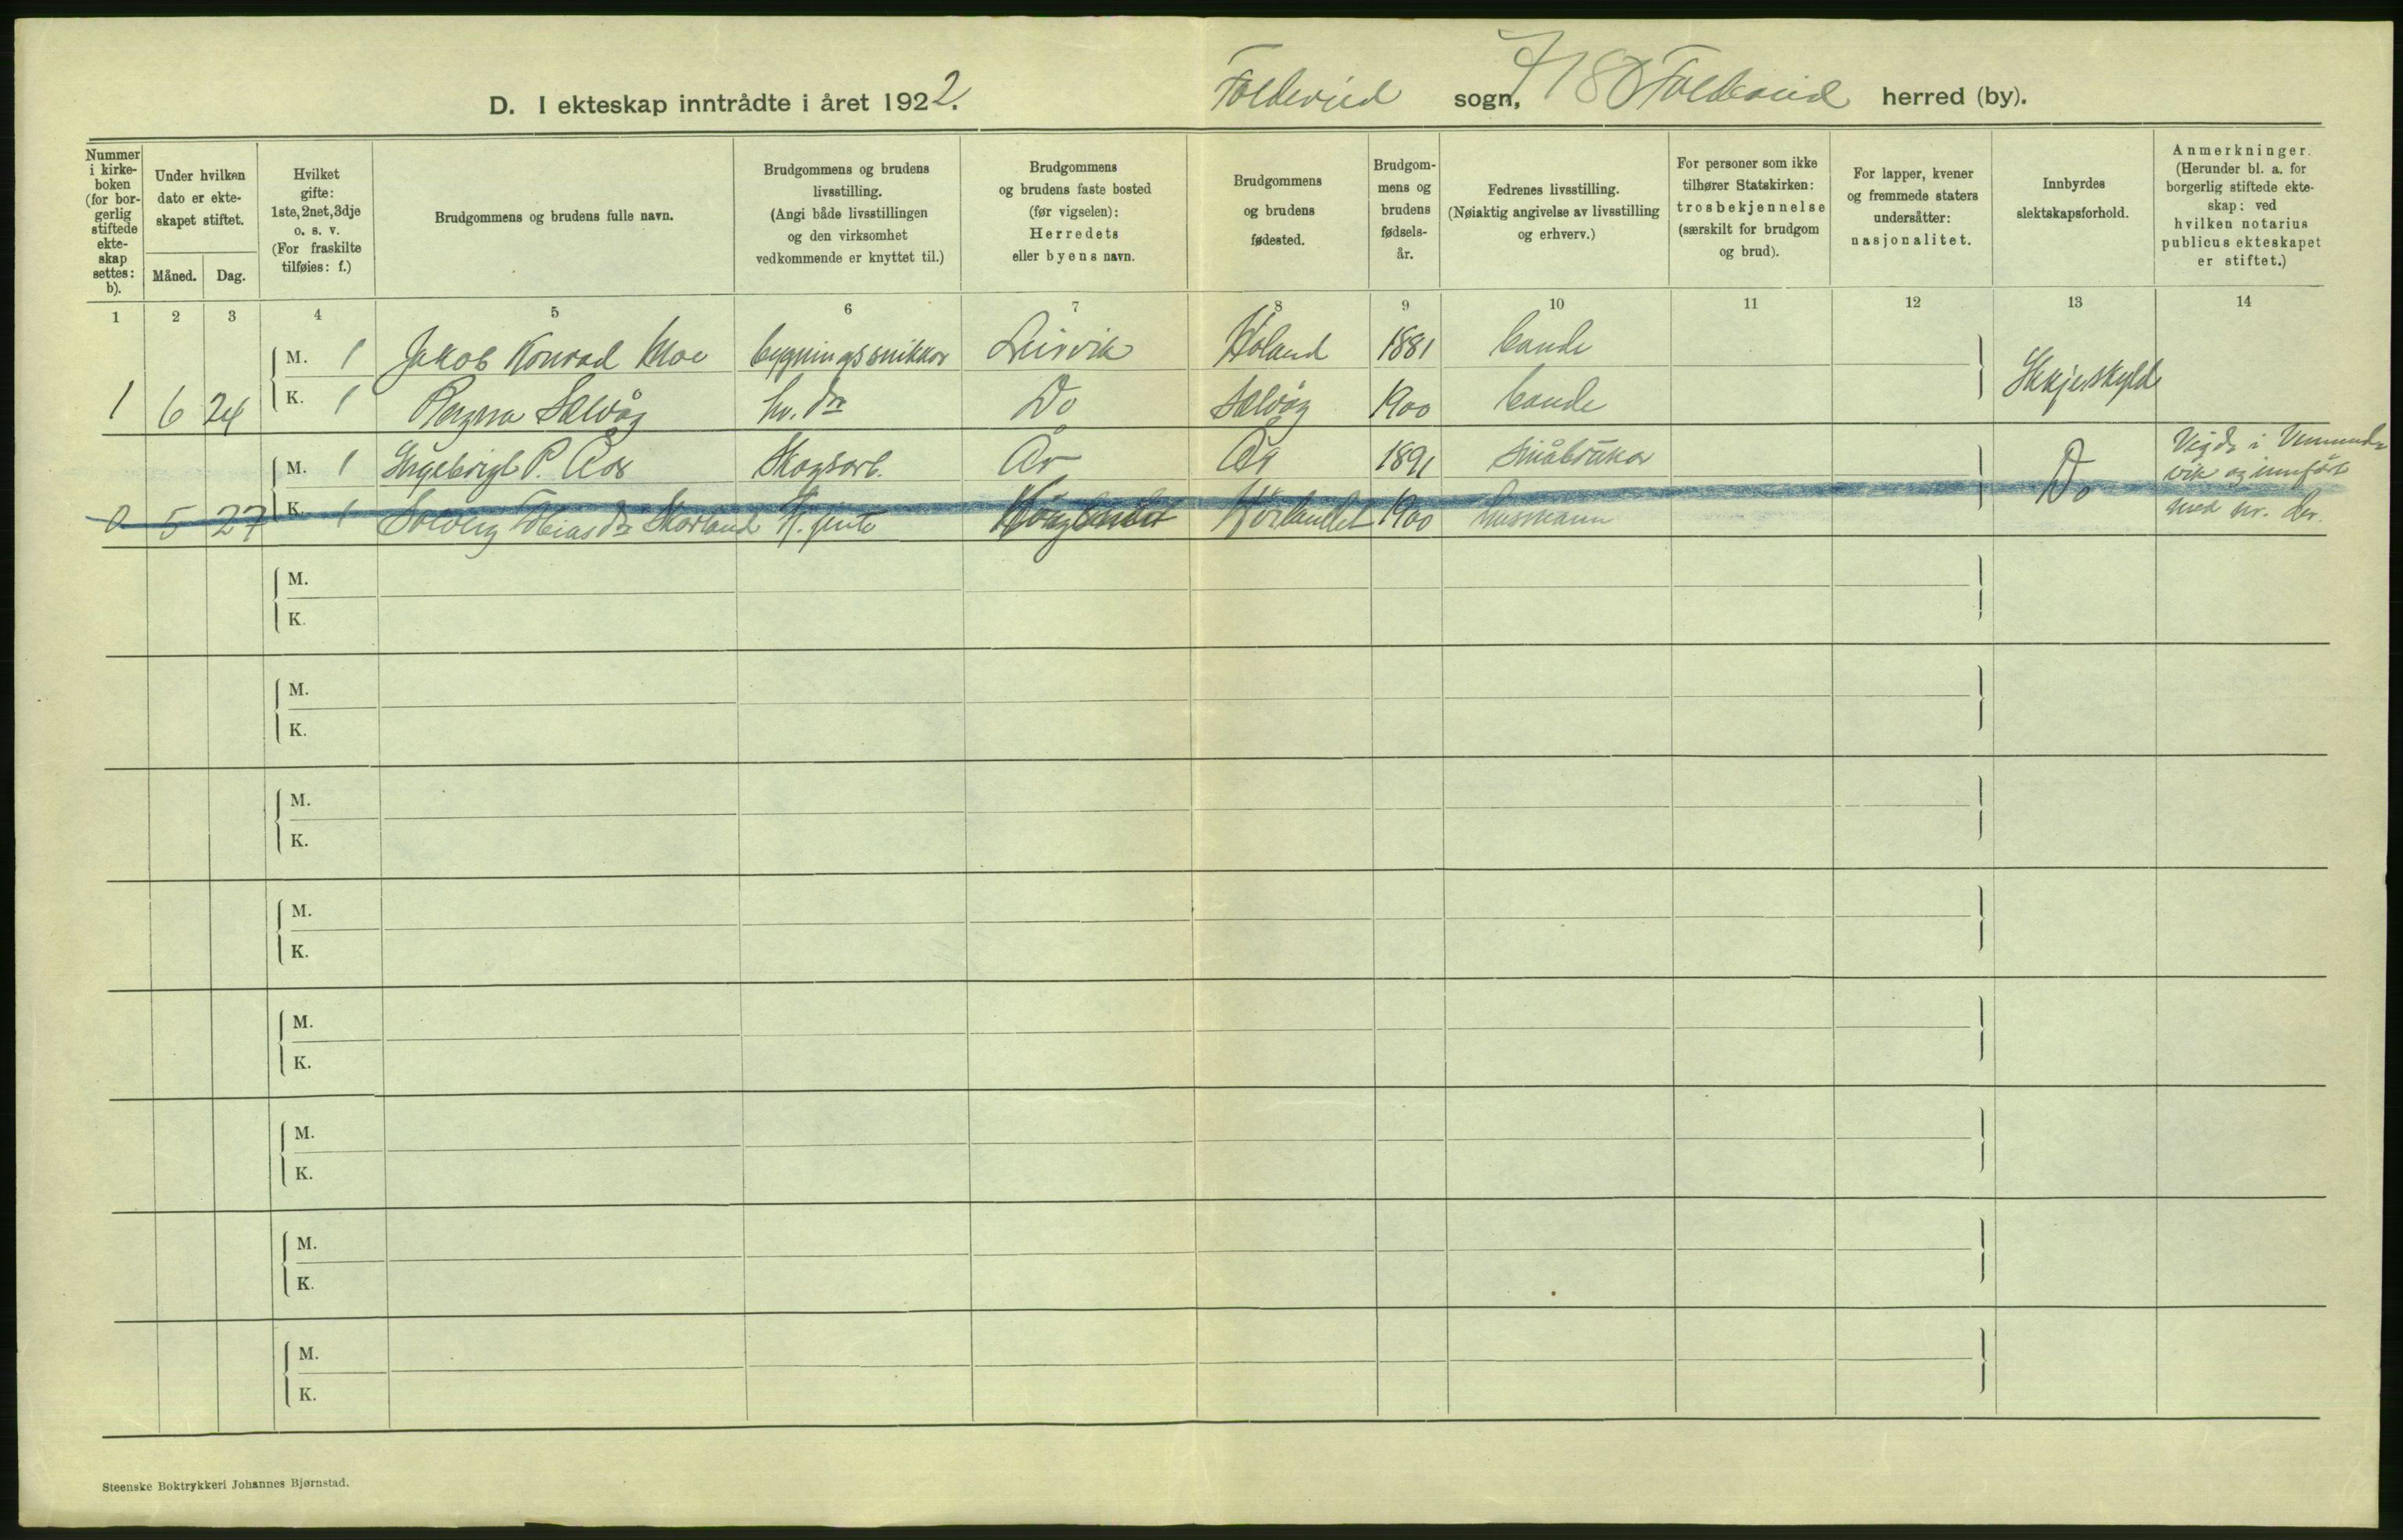 D. I ekteskap inntrådte i året 1922. Foldereid sogn, Foldereid herred (by).
Nummer i kirkeboken (for borgerlig stiftede ekteskap settes: b).
Under hvilken dato er ekteskapet stiftet.
Måned. Dag.
Hvilket gifte: 1ste, 2net, 3dje o. s. v. (For fraskilte tilføies: f.)
Brudgommens og brudens fulle navn.
Brudgommens og brudens livsstilling. (Angi både livsstillingen og den virksomhet vedkommende er knyttet til.)
Brudgommens og brudens faste bosted (før vigselen): Herredets eller byens navn.
Brudgommens og brudens fødested.
Brudgommens og brudens fødselsår.
Fedrenes livsstilling. (Nøiaktig angivelse av livsstilling og erhverv.)
For personer som ikke tilhører Statskirken: trosbekjennelse (særskilt for brudgom og brud).
For lapper, kvener og fremmede staters undersåtter: nasjonalitet.
Innbyrdes slektskapsforhold.
Anmerkninger. (Herunder bl. a. for borgerlig stiftede ekteskap: ved hvilken notarius publicus ekteskapet er stiftet.)
1 2 3 4 5 6 7 8 9 10 11 12 13 14
M. 1 Jakob Konrad Moe bygningssnikkar Leirvik Høland 1881 bonde
1 6 24 K. 1 Ragna Sælvåg hv. dtr Do Sælvåg 1900 bonde
M. 1 Ingebrigt P. Aar Skogsarb. År År 1891 småbrukar Do Vigde i
0 5 27 K. 1 Solveig Tobiasdtr 1900 husmann
M.
K.
M.
K.
M.
K.
M.
K.
M.
K.
M.
K.
M.
K.
M.
K.
Steenske Boktrykkeri Johannes Bjørnstad.